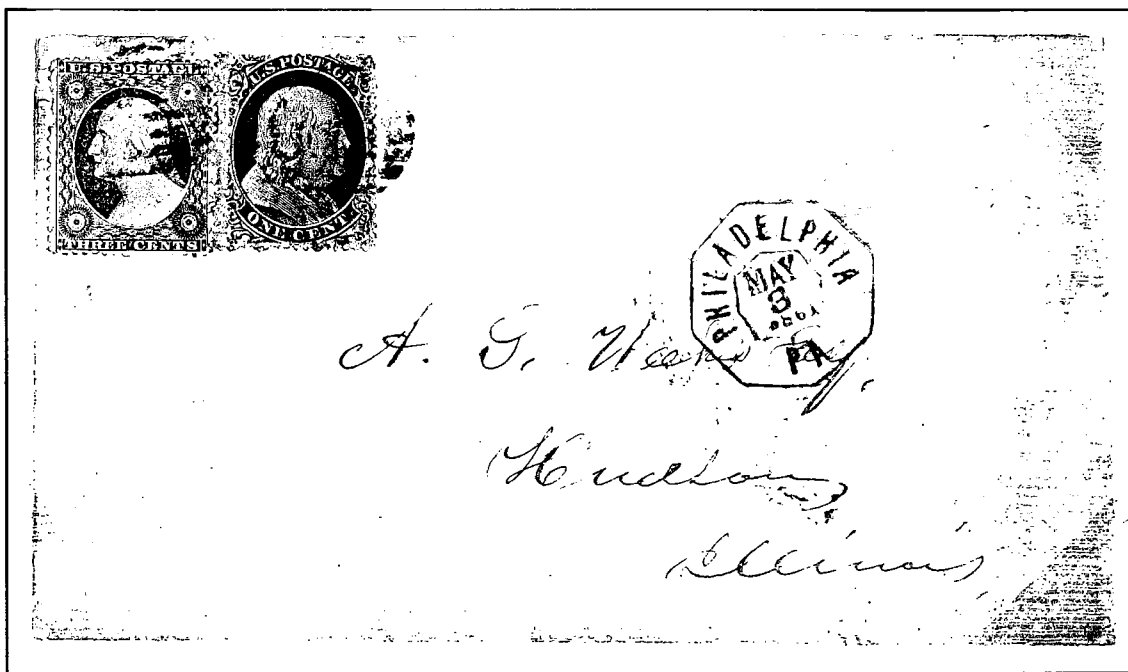 U.S. POSTAGE
THREE CENTS
U.S. POSTAGE
ONE CENT
PHILADELPHIA
MAY
3
PA
A. G.
Hudson
Illinois